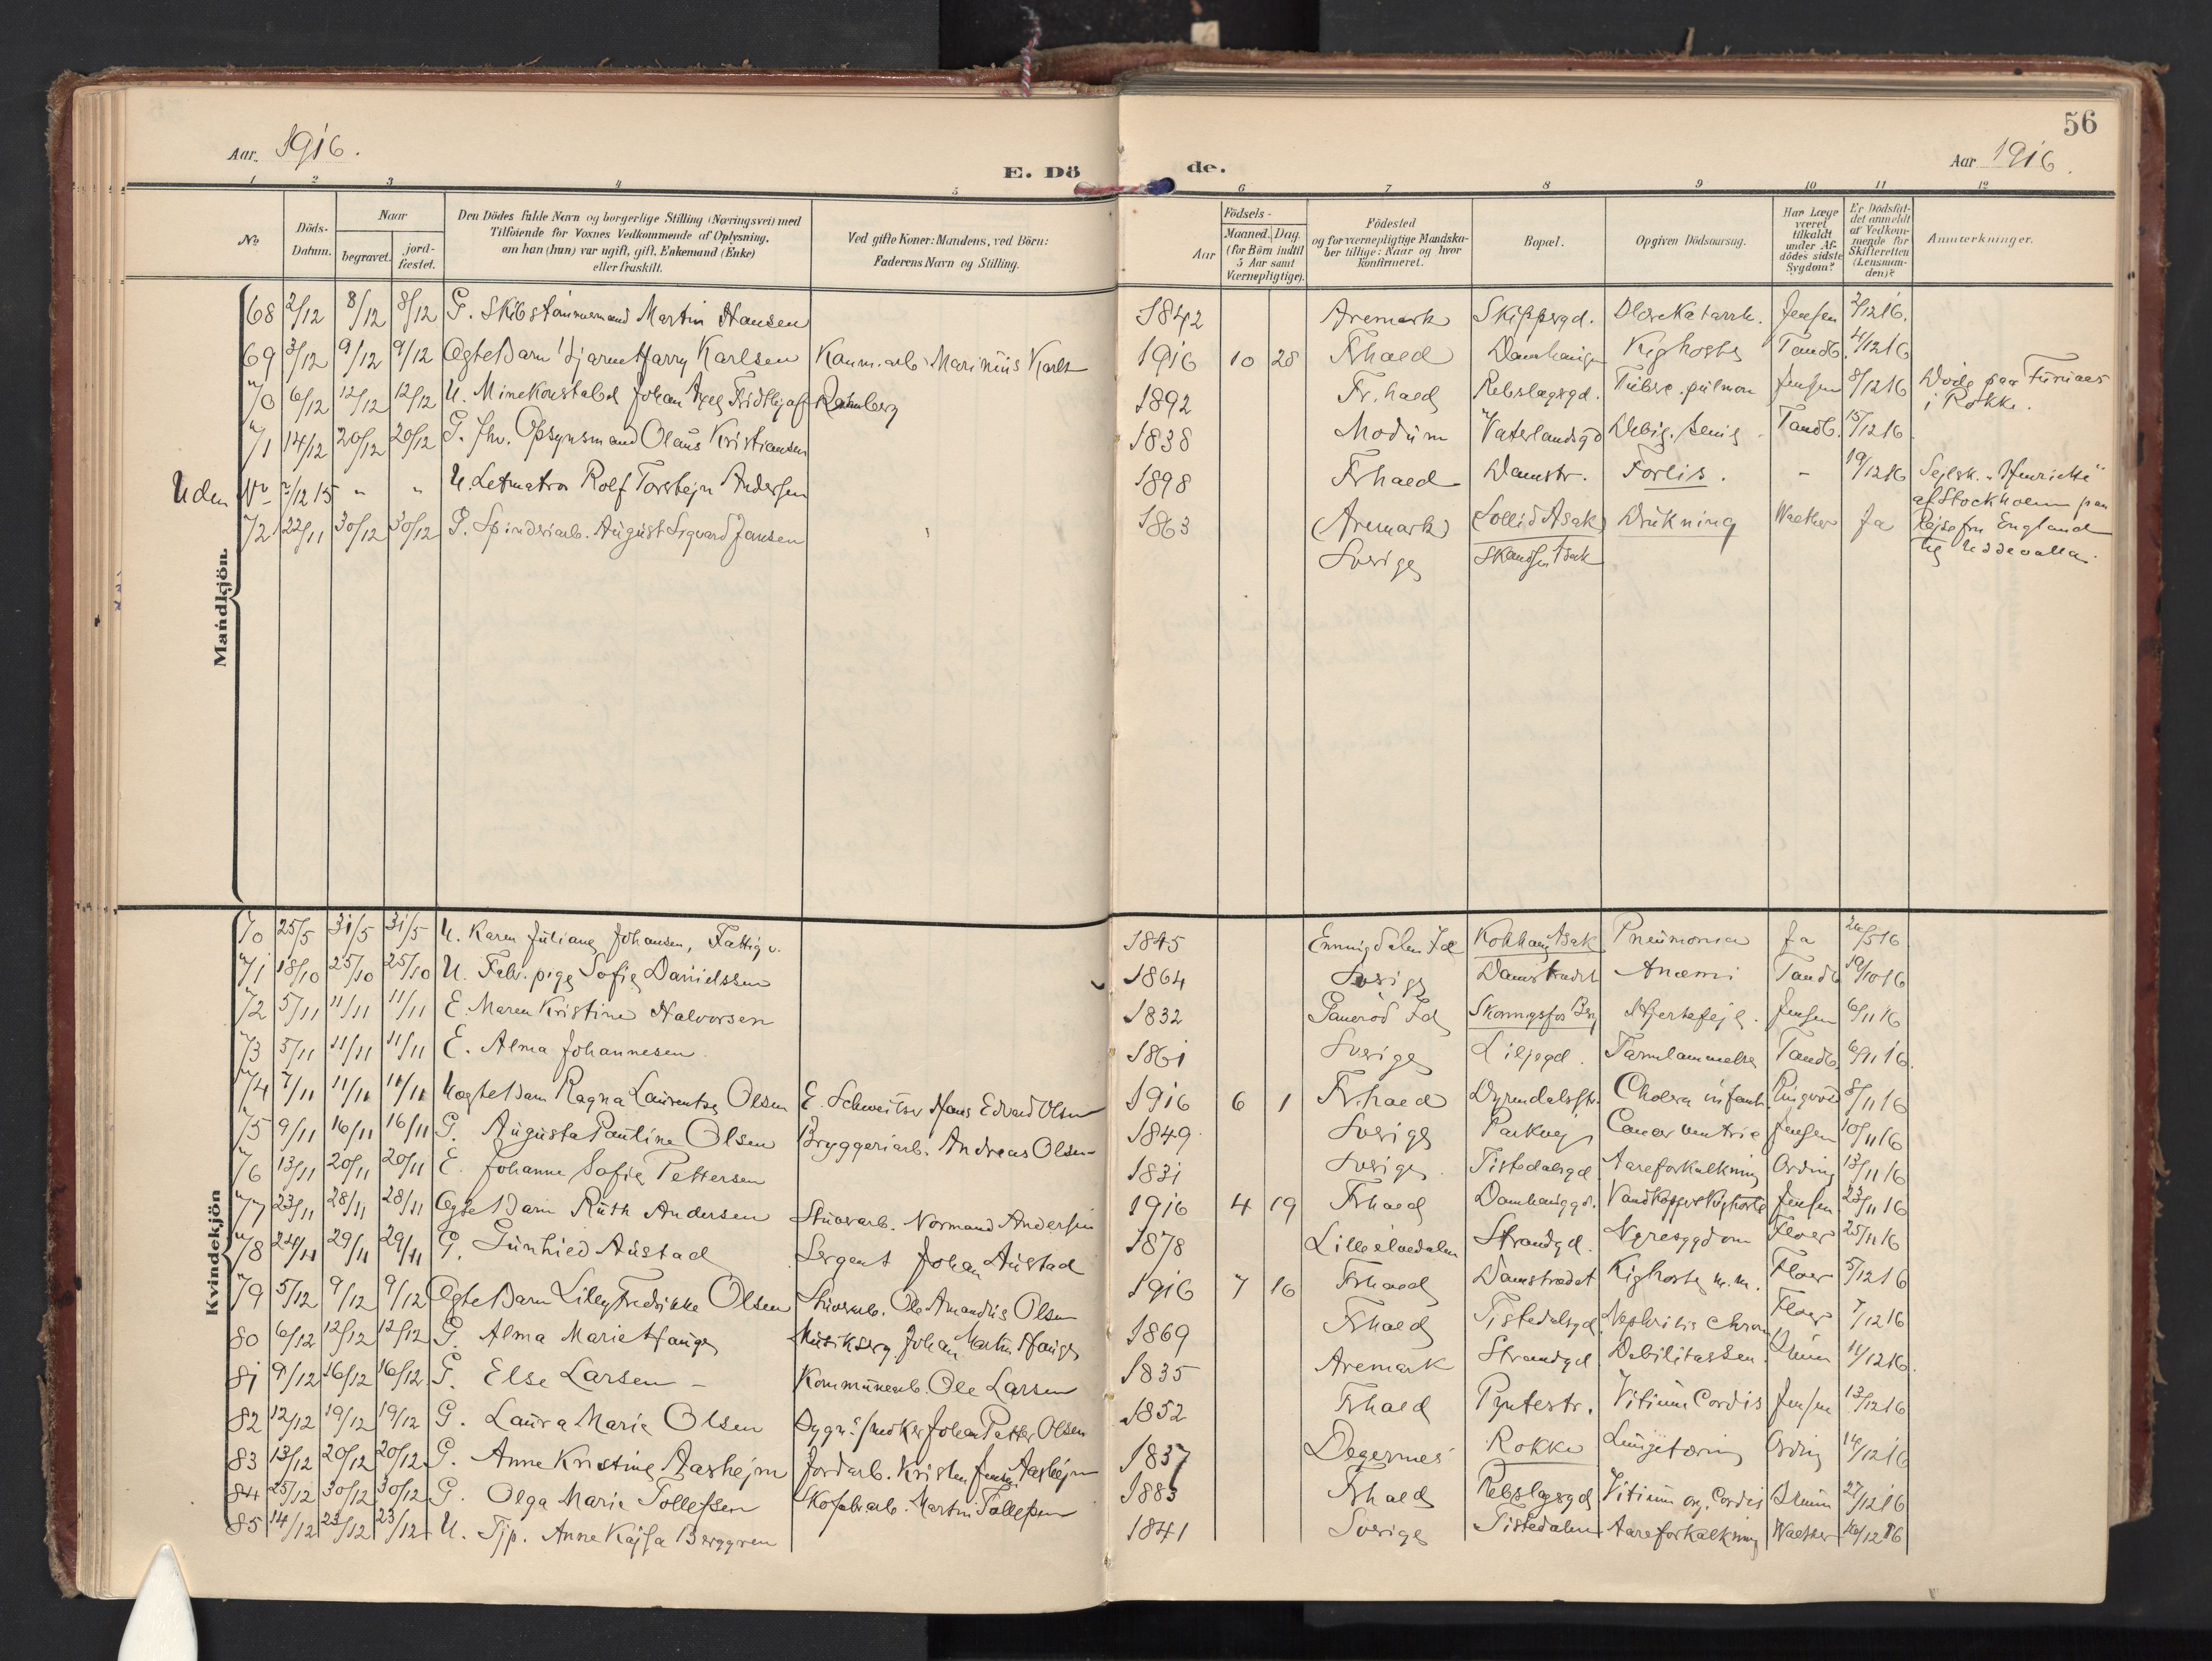 56
Aar. 1916.
E. Dö de.
Aar 1916.
1 2 3 4 5 6 7 8 9 10 11 12
No
Döds-Datum.
Naar
begravet.
jord-fæstet.
Den Dödes fulde Navn og borgerlige Stilling (Næringsvei) med
Tilföiende for Voxnes Vedkommende af Oplysning,
om han (hun) var ugift, gift, Enkemand (Enke)
eller fraskilt.
Ved gifte Koner: Mandens, ved Börn:
Faderens Navn og Stilling.
Aar
Födsels-
Maaned. Dag.
(for Börn indtil
5 Aar samt
Værnepligtige).
Födested
og for værnepligtige Mandska-
ber tillige: Naar og hvor
konfirmeret.
Bopæl.
Opgiven Dödsaarsag.
Har Læge
været
tilkaldt
under Af-
dödes sidste
Sygdom?
Er Dödsfal-
det anmeldt
af Vedkom-
mende for
Skifteretten
(Lensman-
den)?
Anmærkninger.
Mandkjön.
68 2/12 8/12 8/12 G. Skibstömmermand Martin Hansen 1842 Aremark Skippergd. Jensen 2/12 16.
69 3/12 9/12 9/12 Ægte Barn Bjarne Harry Karlsen Marinius Karls 1916 10 28 Frhald Kighoste Tandb. 4/12 16
70 6/12 12/12 12/12 U. Minekonstabel Johan Axel Fridthjof 1892 Fr.hald Rebslagergd. Tuberc. pulmon Jensen 8/12 16 Döde paa Furunes i Rokke.
71 14/12 20/12 20/12 G. fhv. Opsynsmand Olaus Kristiansen 1838 Modum Vaterlandsgd Debil. senil Tandb. 15/12 16
Uden No 7/12 15 " " U. Letmatros Rolf Torstejn Andersen 1898 Frhald Damstr. Forlis. - 19/12 16 Sejlsk. "Henriette" af Stockholm paa Rejse fra England til Uddevalla.
72 22/11 30/12 30/12 G. Spinderiarb. August Sigvard Jansen 1863 (Aremark) Sverige (Sollid Asak) Asak Drukning Walther Ja
Kvindekjön
70 25/5 31/5 31/5 U. Karen Juliane Johansen, Fattig u. 1845 Enningdalen Id Asak Pneumonia Ja 26/5 16
71 18/10 25/10 25/10 U. Fabr. pige Sofie Danielssen 1864 Sverige Damstrædet Anæmi Tandb 19/10 16
72 5/11 11/11 11/11 E. Maren Kristine Halvorsen 1832 Id Hjertefejl. Jensen 6/11 16
73 5/11 11/11 11/11 E. Alma Johannesen 1861 Sverige Liljegd. Tarmlammelse Tandb. 6/11 16.
74 7/11 11/11 11/11 Uægte Barn Ragna Laurentze Olsen E. Schweitser Hans Edvard Olsen 1916 6 1 Fr.hald Dyrendalsstr. Cholera infant. Ringvold 8/11 16
75 9/11 16/11 16/11 G. Augusta Pauline Olsen Bryggeriarb. Andreas Olsen 1849 Sverige Parkvej Cancer ventric Jensen 10/11 16
76 13/11 20/11 20/11 E. Johanne Sofie Pettersen 1831 Sverige Tistedalsgd Aareforkalkning Ording 13/11 16
77 23/11 28/11 28/11 Ægte Barn Ruth Andersen Stuvarb. Normand Andersen 1916 4 19 Frhald Damhauggd. Vandkopper Kighoste Jensen 23/11 16
78 24/11 29/11 29/11 G. Gunhild Austad Sergent Johan Austad 1878 Lilleelvedalen Strandgd. Nyresygdom Floer 25/11 16
79 5/12 9/12 9/12 Ægte Barn Lilly Fredrikke Olsen Stuvarb. Ole Amandus Olsen 1916 7 16 Frhald Damstrædet Kighoste m.m. Floer 5/12 16
80 6/12 12/12 12/12 G. Alma Marie Hauge Musikserg. Johan Martin Hauge 1869 Frhald Tistedalsgd. Nephritis chron Floer 7/12 16
81 9/12 16/12 16/12 G. Else Larsen Kommunearb. Ole Larsen 1835 Aremark Strandgd Debilitas sen. 11/12 16.
82 12/12 19/12 19/12 G. Laura Marie Olsen Johan Petter Olsen 1852 Frhald Pyntestr. Vitium Cordis Jensen 13/12 16
83 13/12 20/12 20/12 G. Anne Kristine Aashejm Jordarb. Kristen Jensen Aashejm 1837 Degernes Rokke Lungetæring Ording 14/12 16
84 25/12 30/12 30/12 G. Olga Marie Tollefsen Skofabrarb. Martin Tollefsen 1883 Frhald Rebslagergd Vitium org. Cordis 27/12 16
85 14/12 23/12 23/12 U. Tjp. Anne Kajsa Berggren 1841 Sverige Tistedalen Aareforkalkning Walther 16/12 16